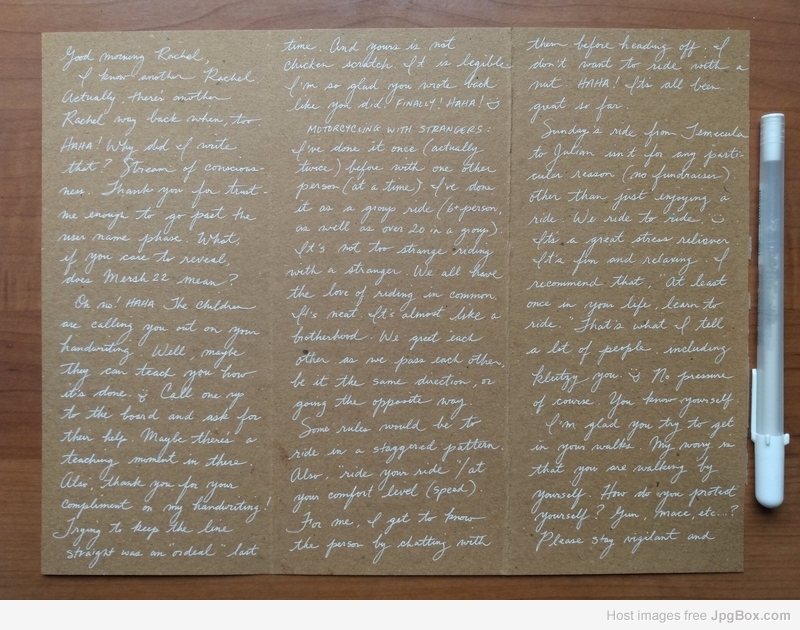 Good morning Rachel,
I know another Rachel
Actually, there's another
Rachel way back when, too
HAHA! Why did I write
that? Stream of conscious-
ness. Thank you for trust-
me enough to go past the
user name phase. What,
if you care to reveal,
does Mersh 22 mean?
Oh no! HAHA The children
are calling you out on your
handwriting. Well, maybe
they can teach you how
it's done. Call one up
to the board and ask for
their help. Maybe there's a
teaching moment in there.
Also, thank you for your
compliment on my handwriting!
Trying to keep the line
straight was an "ordeal" last
time. And yours is not
chicken scratch. It is legible
I'm so glad you wrote back
like you did. FINALLY! HAHA!
MOTORCYCLING WITH STRANGERS:
I've done it once (actually
twice) before with one other
person (at a time). I've done
it as a group ride (6+ person,
as well as over 20 in a group)
It's not too strange riding
with a stranger. We all have
the love of riding in common.
It's neat. It's almost like a
brotherhood. We greet each
other as we pass each other,
be it the same direction, or
going the opposite way.
Some rules would be to
ride in a staggered pattern.
Also, "ride your ride"/at
your comfort level (speed).
For me, I get to know
the person by chatting with
them before heading off. I
don't want to ride with a
nut. HAHA! It's all been
great so far.
Sunday's ride from Temecula
to Julian isn't for any parti-
cular reason (no fundraiser)
other than just enjoying a
ride. We ride to ride.
It's a great stress reliever
It's fun and relaxing. I
recommend that, "At least
once in your life, learn to
ride." That's what I tell
a lot of people, including
klutzy you. No pressure
of course. You know yourself.
I'm glad you try to get
in your walks. My worry is
that you are walking by
yourself. How do you protect
yourself? Gun, mace, etc...?
Please stay vigilant and
Host images free JpgBox.com